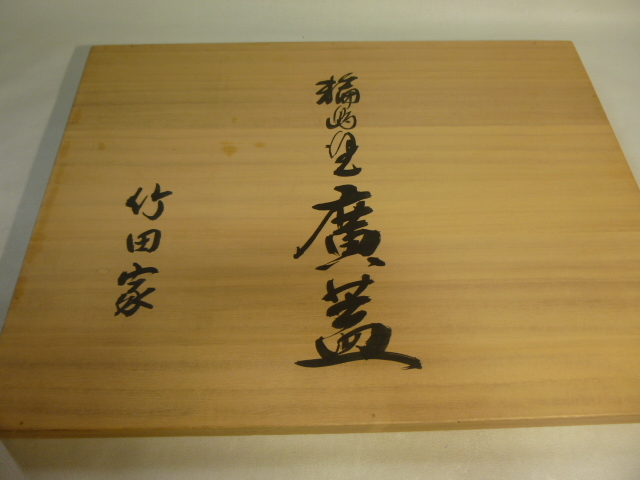 輪島塗 廣蓋
竹田家